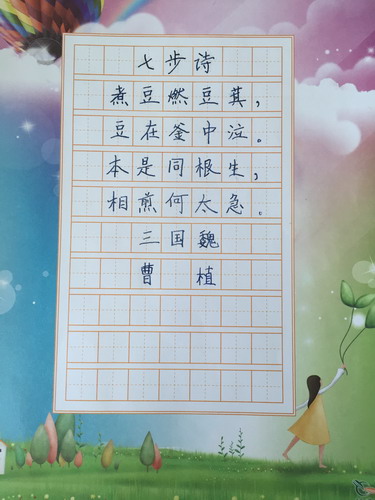 七步诗
煮豆燃豆萁,
豆在釜中泣。
本是同根生,
相煎何太急。
三国魏
曹 植